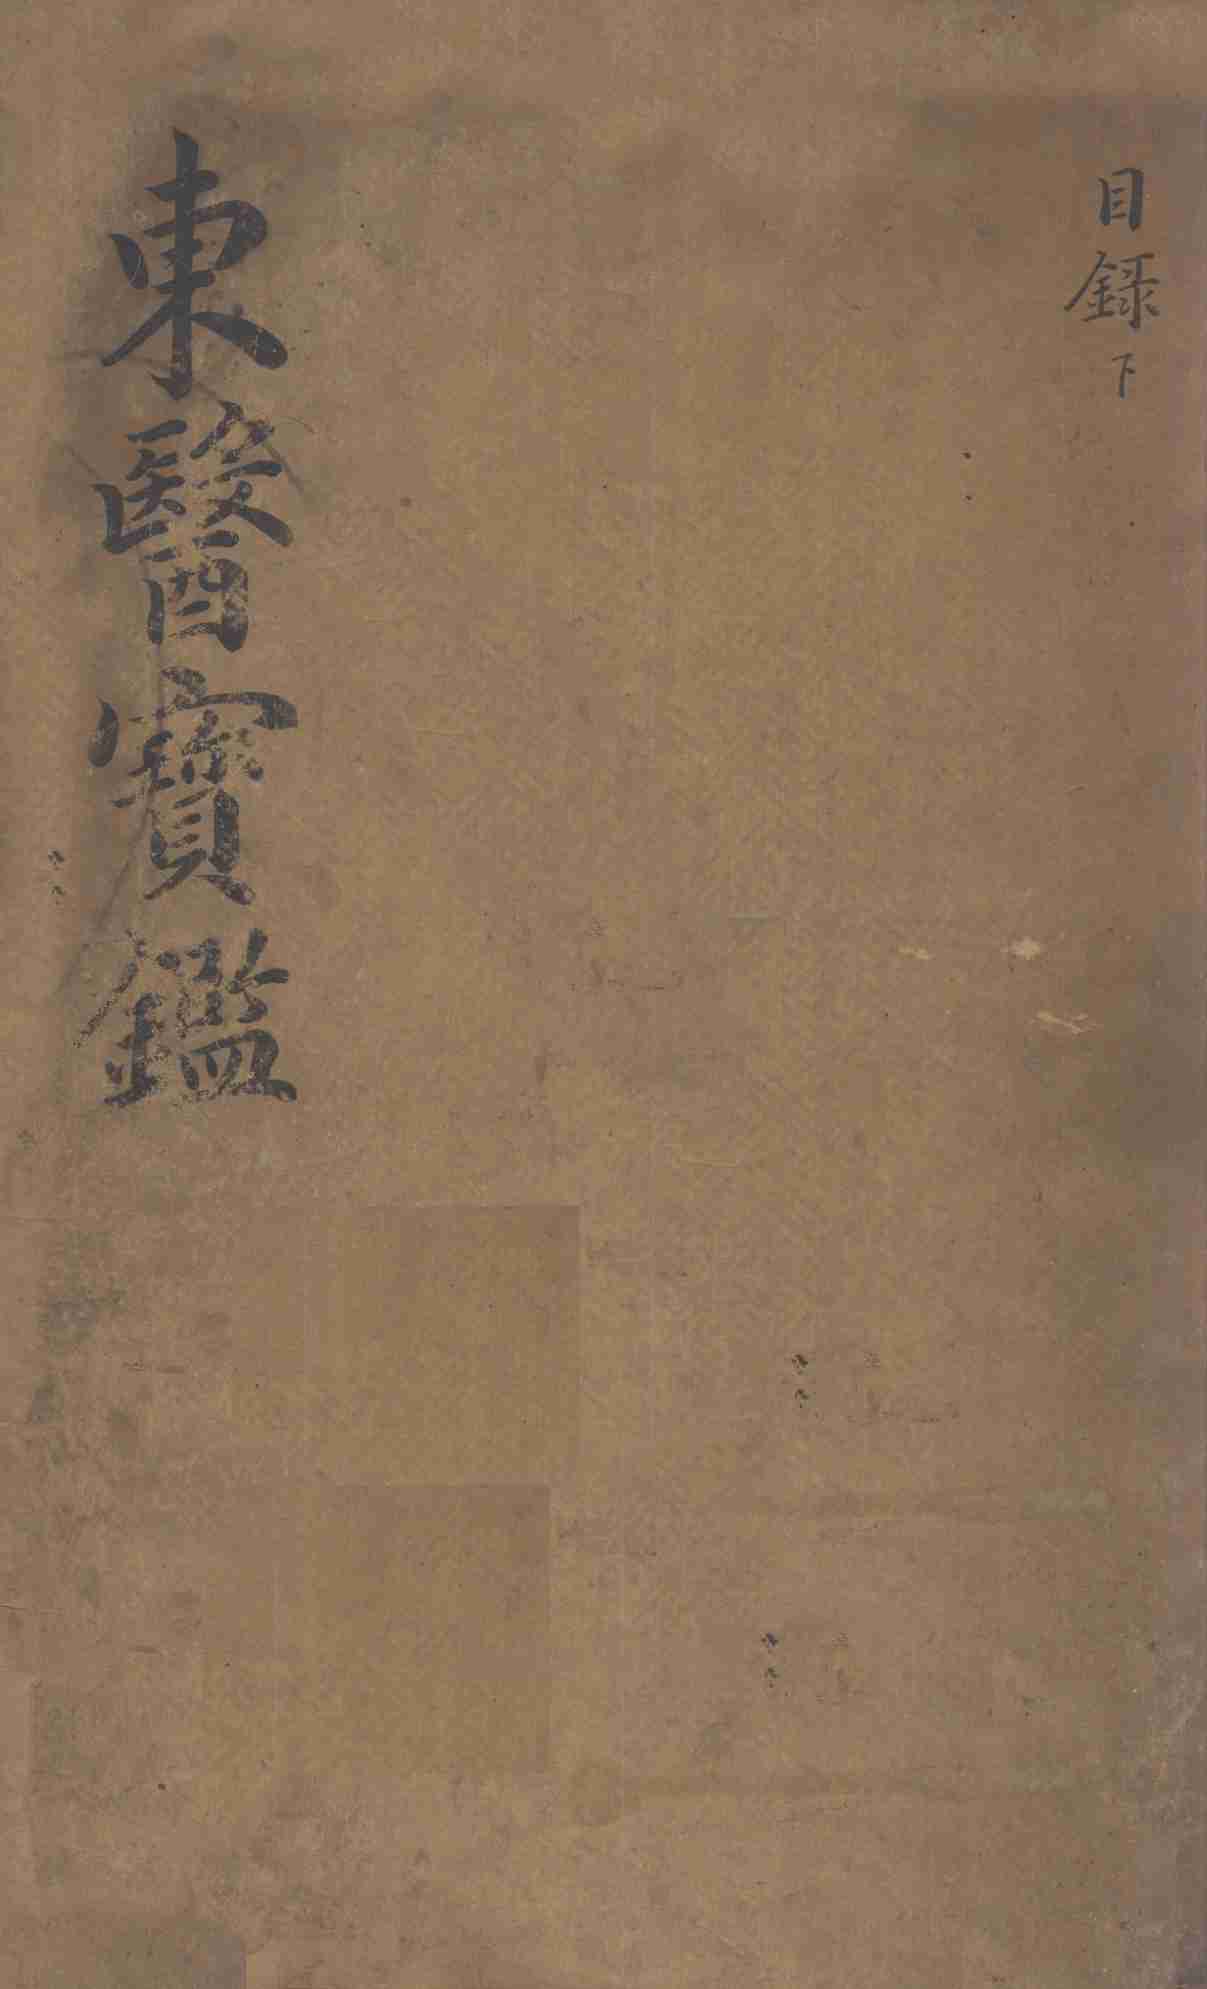 目録下
東醫寶鑑